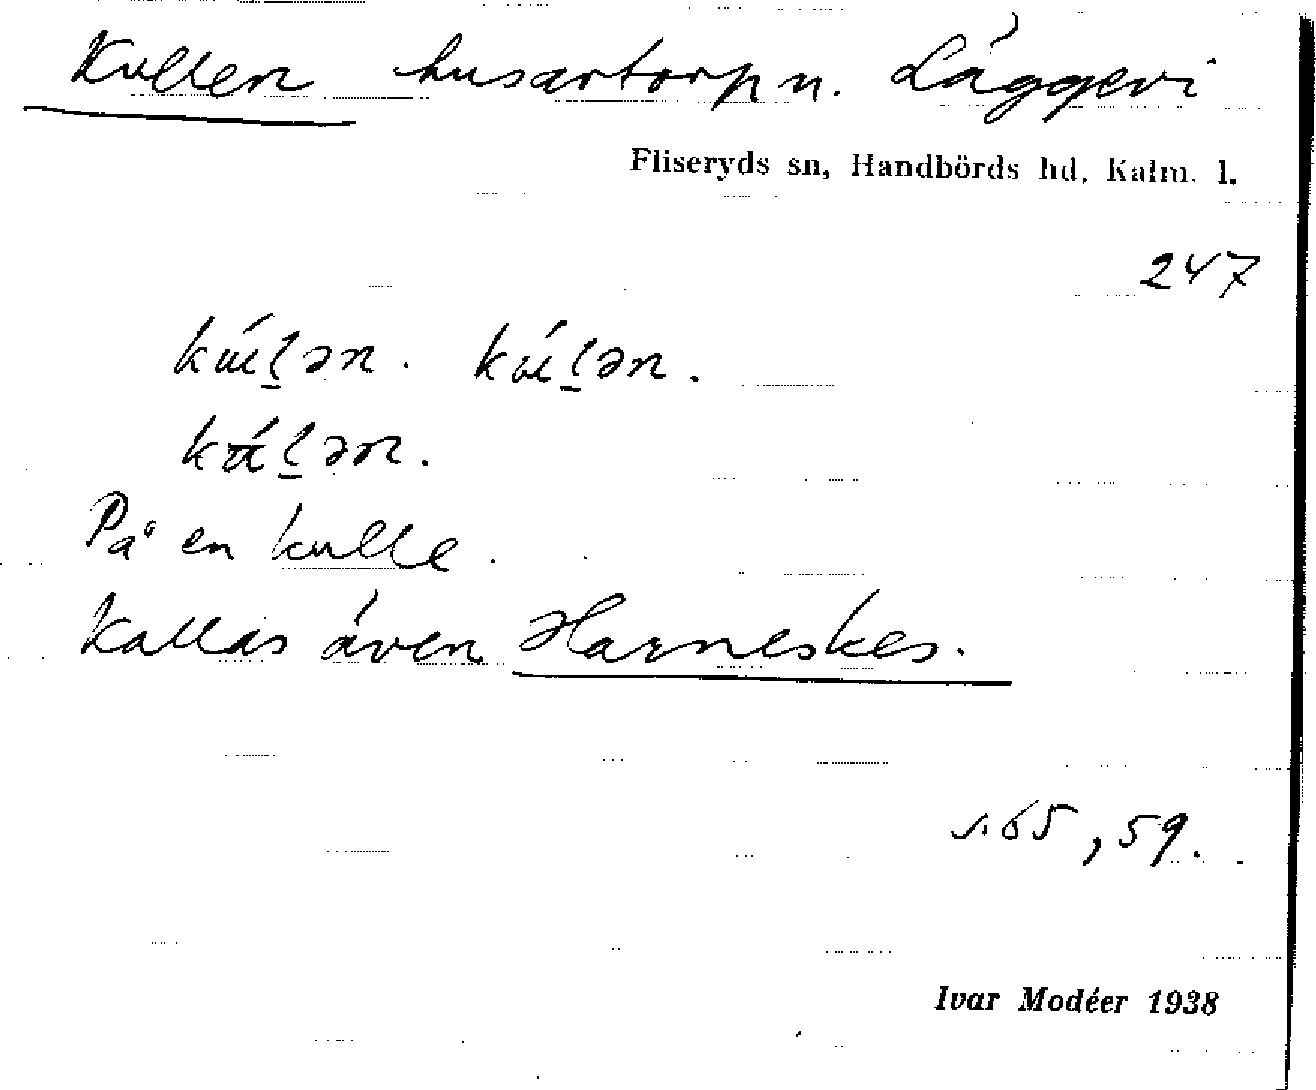 Kullen husartorp u. Läggevi
Fliseryds sn, Handbörds hd, Kalm. l.
247
På en kulle.
Kallas även Harneskes.
s. 65, 59.
Ivar Modéer 1938